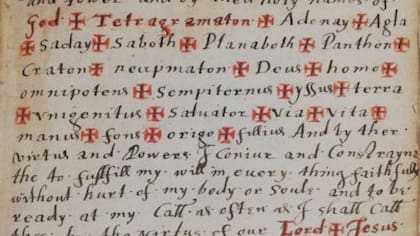 and power and by these holy names of
God ✠ Tetragramaton ✠ Adonay ✠ Agla
✠ Saday ✠ Saboth ✠ Planaboth ✠ Panthon ✠
Craton ✠ neupmaton ✠ Deus ✠ homo ✠
omnipotens ✠ Sempitornus ✠ yssus ✠ terra
✠ vnigenitus ✠ Saluator ✠ via ✠ vita ✠
manus ✠ fons ✠ origo ✠ fillius. And by ther
virtus and Powers I Coniur and Constrayne
the to fullfill my will in every thing faithfully
without hurt of my body or Soule and to be
ready at my Call as often as I shall Call
the virtus of our Lord ✠ Jesus